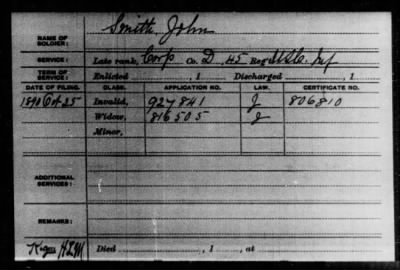 Smith, John
NAME OF SOLDIER:
SERVICE: Late rank, Corp Co. D, 45 Reg U.S.C. Inf
TERM OF SERVICE: Enlisted , 1 Discharged , 1
DATE OF FILING. CLASS. APPLICATION NO. LAW. CERTIFICATE NO.
1890 Oct 25 Invalid, 927841 J 806810
Widow, 816505 J
Minor,
ADDITIONAL SERVICES:
REMARKS:
Died , 1 , at